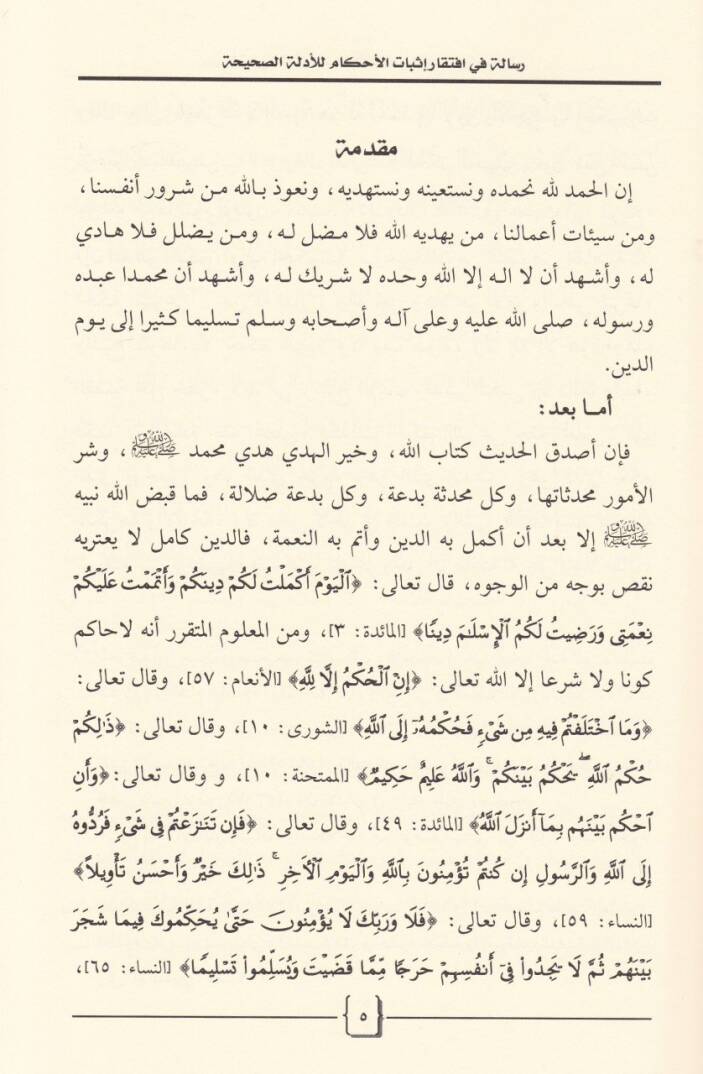 رسالة في افتقار إثبات الأحكام للأدلة الصحيحة
مقدمة
إن الحمد لله نحمده ونستعينه ونستهديه، ونعوذ بالله من شرور أنفسنا،
ومن سيئات أعمالنا، من يهديه الله فلا مضل له، ومن يضلل فلا هادي
له، وأشهد أن لا اله إلا الله وحده لا شريك له، وأشهد أن محمدا عبده
ورسوله، صلى الله عليه وعلى آله وأصحابه وسلم تسليما كثيرا إلى يوم
الدين.
أما بعد:
فإن أصدق الحديث كتاب الله، وخير الهدي هدي محمد ﷺ، وشر
الأمور محدثاتها، وكل محدثة بدعة، وكل بدعة ضلالة، فما قبض الله نبيه
ﷺ إلا بعد أن أكمل به الدين وأتم به النعمة، فالدين كامل لا يعتريه
نقص بوجه من الوجوه، قال تعالى: ﴿ٱلۡيَوۡمَ أَكۡمَلۡتُ لَكُمۡ دِينَكُمۡ وَأَتۡمَمۡتُ عَلَيۡكُمۡ
نِعۡمَتِى وَرَضِيتُ لَكُمُ ٱلۡإِسۡلَٰمَ دِينٗا﴾ [المائدة: ٣]، ومن المعلوم المتقرر أنه لاحاكم
كونا ولا شرعا إلا الله تعالى: ﴿إِنِ ٱلۡحُكۡمُ إِلَّا لِلَّهِ﴾ [الأنعام: ٥٧]، وقال تعالى:
﴿وَمَا ٱخۡتَلَفۡتُمۡ فِيهِ مِن شَىۡءٖ فَحُكۡمُهُۥٓ إِلَى ٱللَّهِ﴾ [الشورى: ١٠]، وقال تعالى: ﴿ذَٰلِكُمۡ
حُكۡمُ ٱللَّهِۖ يَحۡكُمُ بَيۡنَكُمۡۚ وَٱللَّهُ عَلِيمٌ حَكِيمٞ﴾ [الممتحنة: ١٠]، و وقال تعالى: ﴿وَأَنِ
ٱحۡكُم بَيۡنَهُم بِمَآ أَنزَلَ ٱللَّهُ﴾ [المائدة: ٤٩]، وقال تعالى: ﴿فَإِن تَنَٰزَعۡتُمۡ فِى شَىۡءٖ فَرُدُّوهُ
إِلَى ٱللَّهِ وَٱلرَّسُولِ إِن كُنتُمۡ تُؤۡمِنُونَ بِٱللَّهِ وَٱلۡيَوۡمِ ٱلۡأٓخِرِۚ ذَٰلِكَ خَيۡرٞ وَأَحۡسَنُ تَأۡوِيلاً﴾
[النساء: ٥٩]، وقال تعالى: ﴿فَلَا وَرَبِّكَ لَا يُؤۡمِنُونَ حَتَّىٰ يُحَكِّمُوكَ فِيمَا شَجَرَ
بَيۡنَهُمۡ ثُمَّ لَا يَجِدُواْ فِىٓ أَنفُسِهِمۡ حَرَجٗا مِّمَّا قَضَيۡتَ وَيُسَلِّمُواْ تَسۡلِيمٗا﴾ [النساء: ٦٥]،
٥